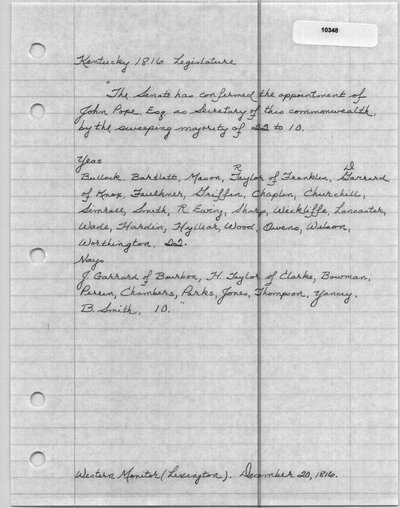 10348
Kentucky 1816 Legislature
"The Senate has confermed the appointment of
John Pope, Esq. as Secretary of this commonwealth,
by the sweeping majority of 22 to 10.
Yeas
Bullock, Bartlett, Mason, R Taylor of Franklin, D Garrard
of Knox, Faulkner, Griffin, Chaplin, Churchill,
Simrall, Smith, R. Ewing, Sharp, Wickliffe, Lancaster,
Wade, Hardin, Hyllear, Wood, Owens, Wilson,
Worthington, 22.
Nays
J. Garrard of Bourbon, H. Taylor of Clarke, Bowman,
Perrin, Chambers, Parks, Jones, Thompson, Yancey,
B. Smith, 10."
Western Monitor (Lexington). December 20, 1816.